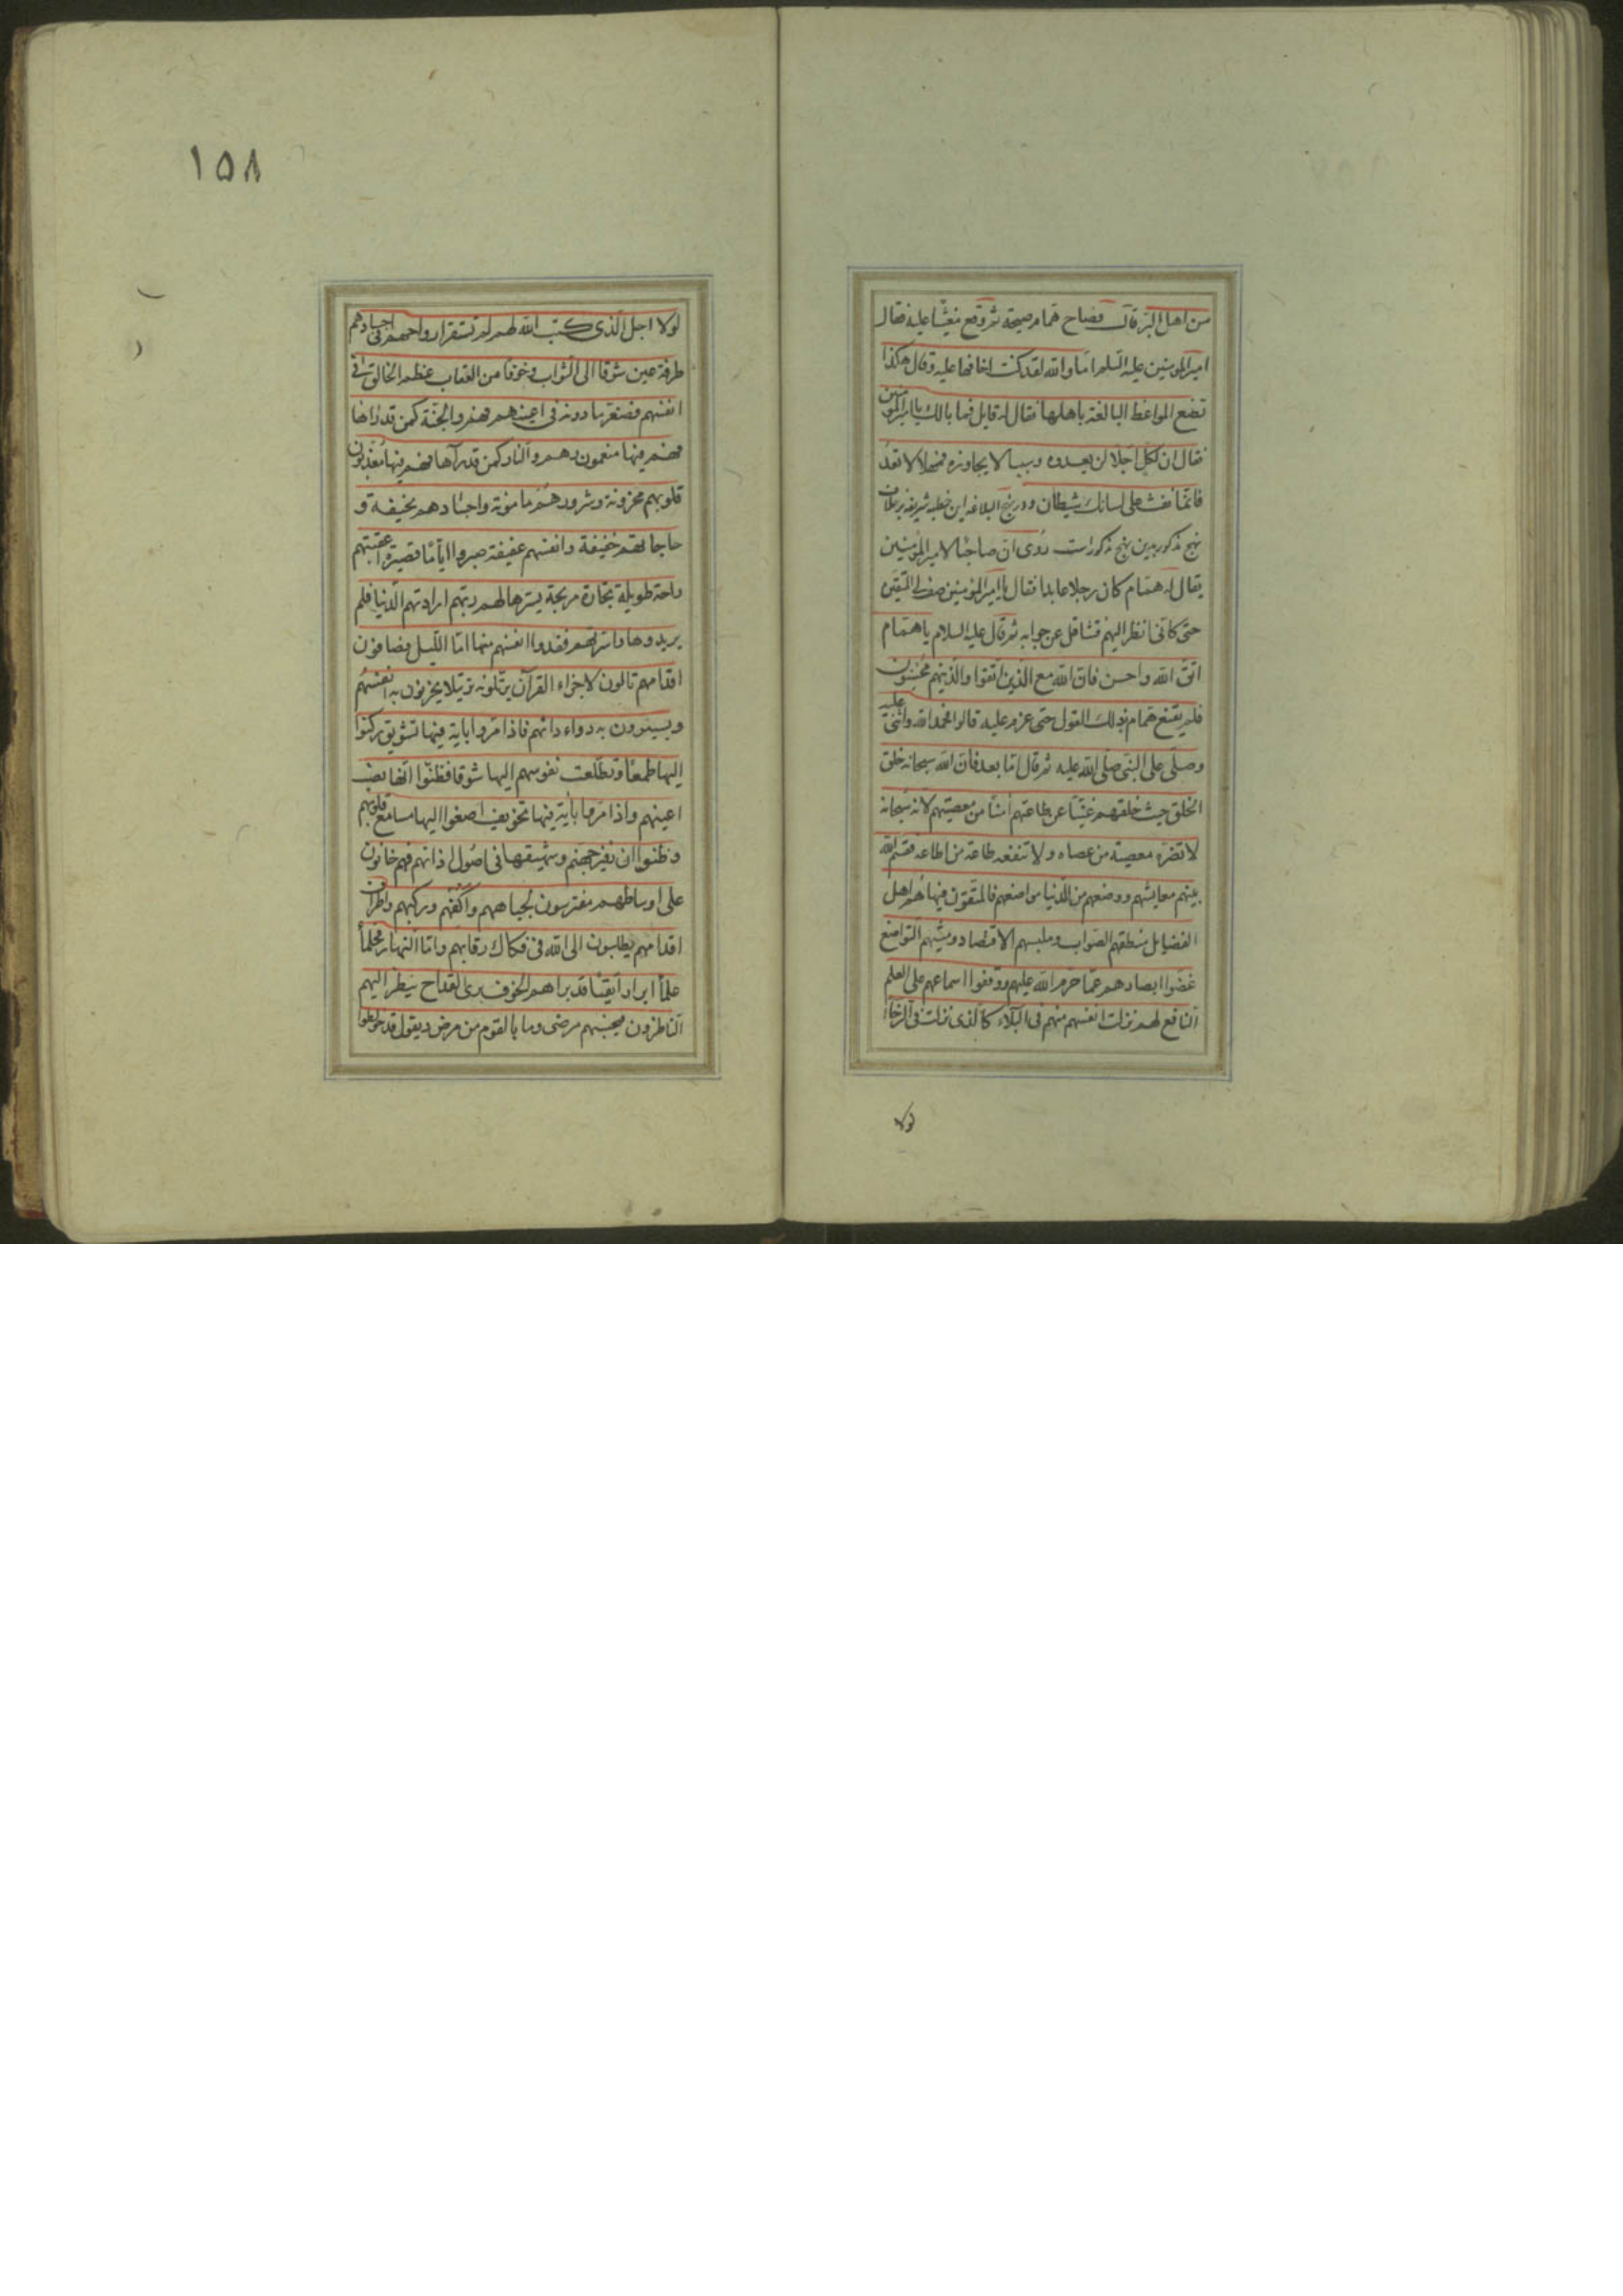 من اهل البر قال فصاح همام صیحة ثم وقع مغشیا علیه فقال
امیر المؤمنین علیه السلم اما والله لقد کنت اخافها علیه و قال هکذا
تصنع المواعظ البالغة باهلها فقال له قایل فما بالک یا امیر المؤمنین
فقال ان لکل اجلا لن یعدوه و سببا لا یجاوزه فمهلا لا تعد
فانما نفث علی لسانک شیطان و در نهج البلاغه این خطبه شریفه بر خلاف
نهج مذکور بدین نهج مذکور است روی ان صاحبا لامیر المؤمنین
یقال له همام کان رجلا عابدا فقال یا امیر المؤمنین صف لی المتقین
حتی کانی انظر الیهم فتثاقل عن جوابه ثم قال علیه السلام یا همام
اتق الله و احسن فان الله مع الذین اتقوا و الذینهم محسنون
فلم یقنع همام بذلک القول حتی عزم علیه قالوا فحمد الله و اثنی علیه
و صلی علی النبی صلی الله علیه ثم قال اما بعد فان الله سبحانه خلق
الخلق حیث خلقهم غنیا عن طاعتهم امنا من معصیتهم لانه سبحانه
لا تضره معصیة من عصاه و لا تنفعه طاعة من اطاعه فقسم الله
بینهم معایشهم و وضعهم من الدنیا مواضعهم فالمتقون فیها هم اهل
الفضایل منطقهم الصواب و ملبسهم الاقتصاد و مشیهم التواضع
غضوا ابصارهم عما حرم الله علیهم و وقفوا اسماعهم علی العلم
النافع لهم نزلت انفسهم منهم فی البلاء کالذی نزلت فی الرخاء
لولا
۱۵۸
لولا اجل الذی کتب الله لهم لم تستقر ارواحهم فی اجسادهم
طرفة عین شوقا الی الثواب و خوفا من العقاب عظم الخالق فی
انفسهم فصغر ما دونه فی اعینهم فهم و الجنة کمن قد راها
فهم فیها منعمون و هم و النار کمن قد رآها فهم فیها معذبون
قلوبهم محزونة و شرورهم مامونة و اجسادهم نحیفة و
حاجاتهم خفیفة و انفسهم عفیفة صبروا ایاما قصیرة اعقبتهم
راحة طویلة تجارة مربحة یسرها لهم ربهم ارادتهم الدنیا فلم
یریدوها و اسرتهم ففدوا انفسهم منها اما اللیل فصافون
اقدامهم تالون لاجزاء القرآن یرتلونه ترتیلا یحزنون به انفسهم
و یستثیرون به دواء دائهم فاذا مروا بایة فیها تشویق رکنوا
الیها طمعا و تطلعت نفوسهم الیها شوقا فظنوا انها نصب
اعینهم و اذا مروا بایة فیها تخویف اصغوا الیها مسامع قلوبهم
و ظنوا ان زفیر جهنم و شهیقها فی اصول اذانهم فهم حانون
علی اوساطهم مفترشون لجباههم و اکفهم و رکبهم و اطراف
اقدامهم یطلبون الی الله فی فکاک رقابهم و اما النهار فحلماء
علماء ابرار اتقیاء قد براهم الخوف بری القداح ینظر الیهم
الناظرون فیحسبهم مرضی و ما بالقوم من مرض و یقول قد خولطوا